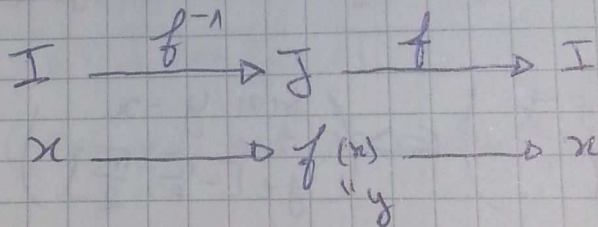 I f⁻¹ J f I
x f(x) x
" y